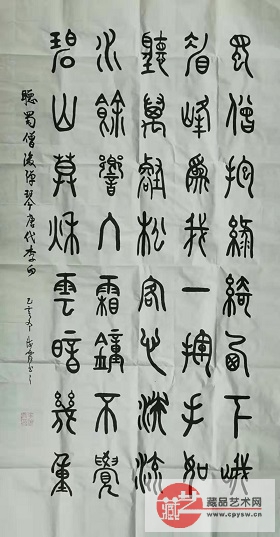 蜀僧抱綠綺西下峨
眉峰爲我一揮手如
聽萬壑松客心洗流
水餘響入霜鐘不覺
碧山暮秋雲暗幾重
聽蜀僧浚彈琴唐代李白
藏品艺术网
www.cpysw.cn